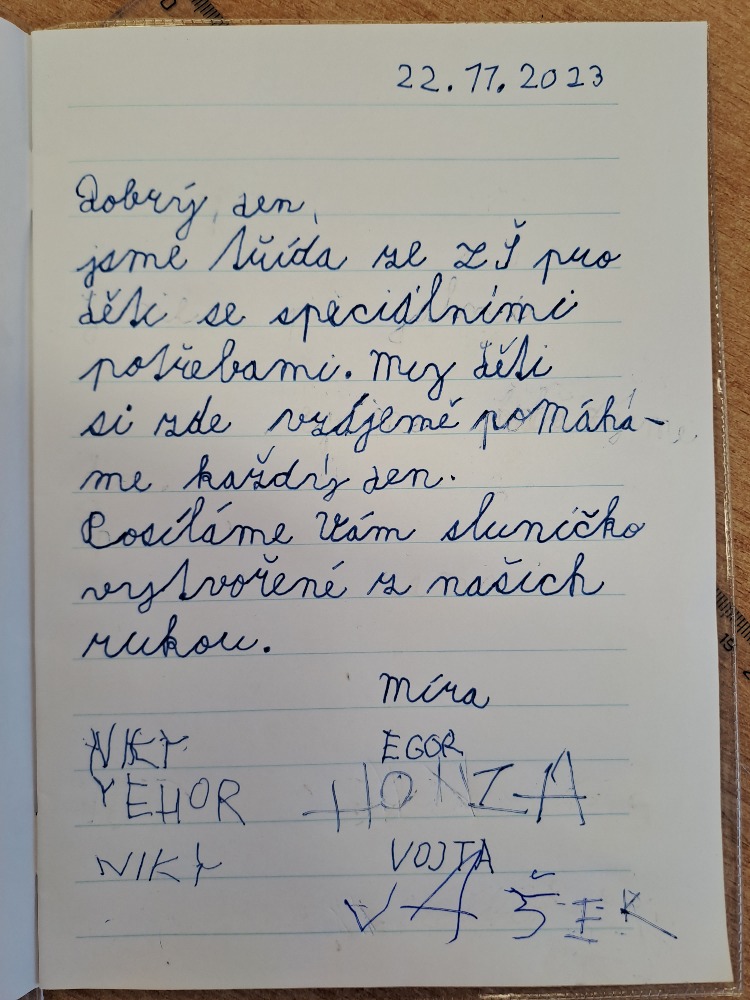 22.11.2023
Dobrý den,
jsme třída ze ZŠ pro
děti se speciálními
potřebami. My děti
si zde vzájemě pomáhá-
me každý den.
Posíláme Vám sluníčko
vytvořené z našich
rukou.
Míra
NIKY EGOR
YEHOR HONZA
NIKY VOJTA
VAŠEK